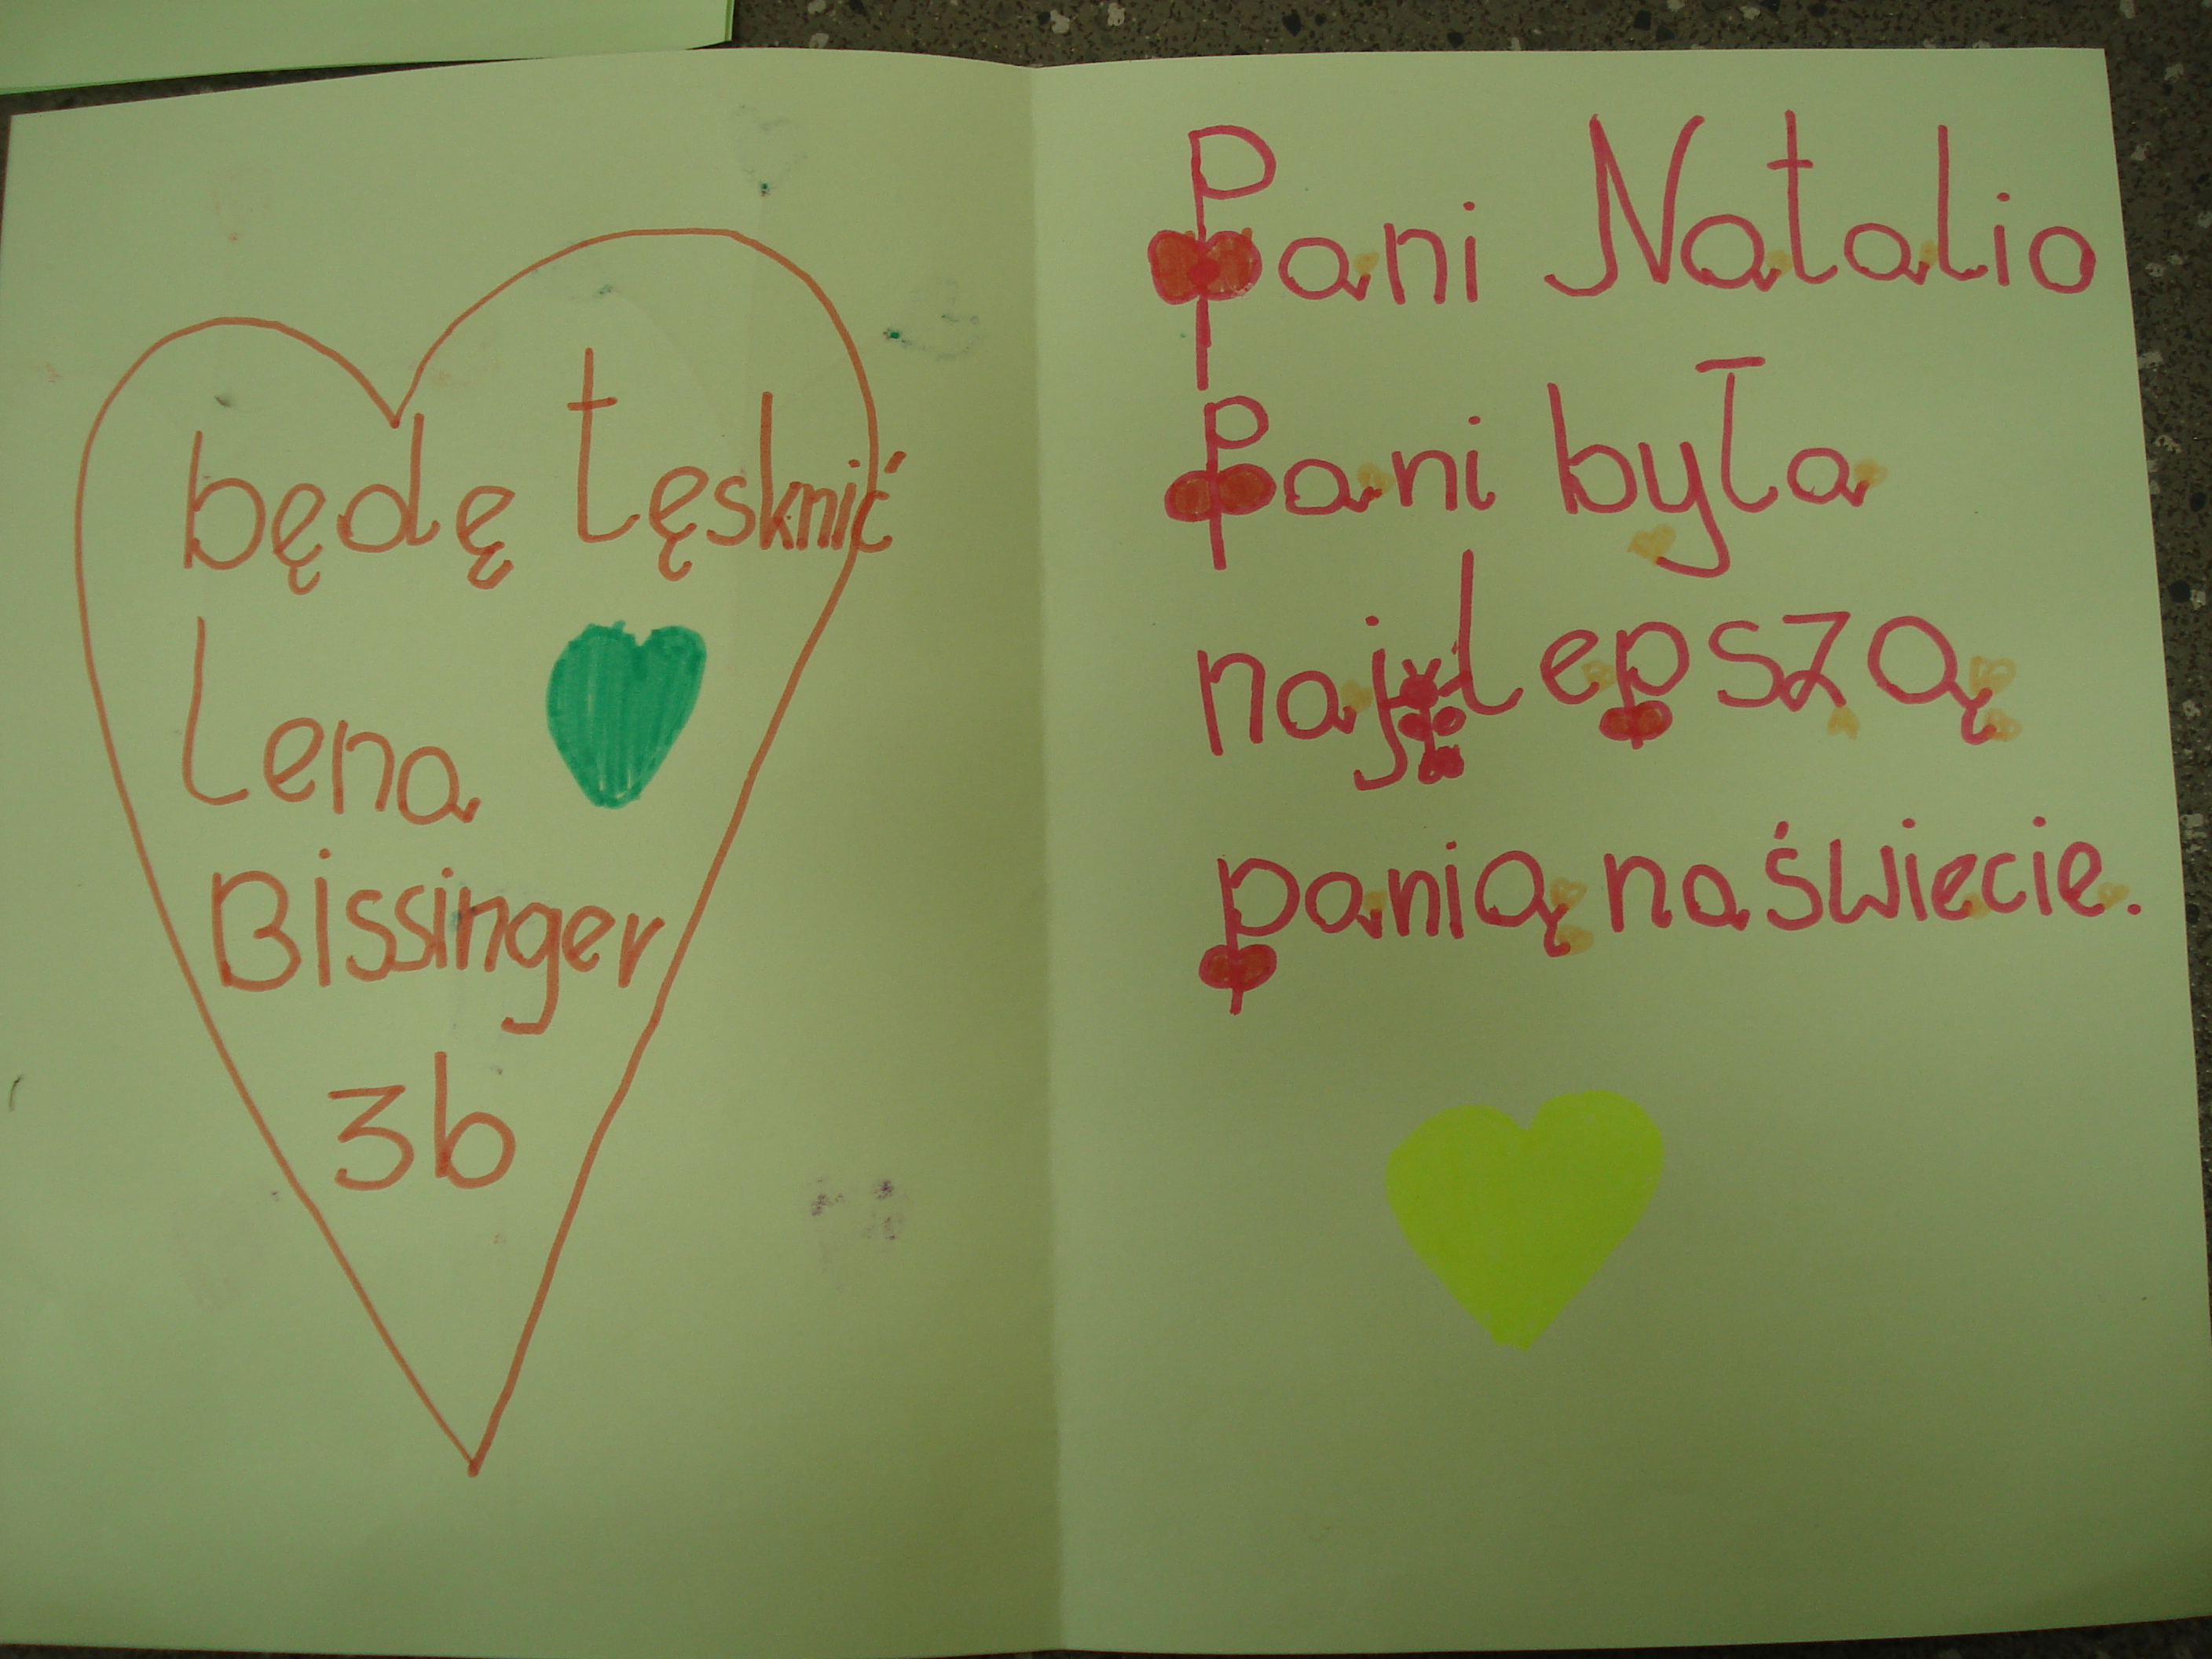 będę tęsknić
Lena
Bissinger
3b
Pani Natalio
Pani była
najlepszą
panią na świecie.